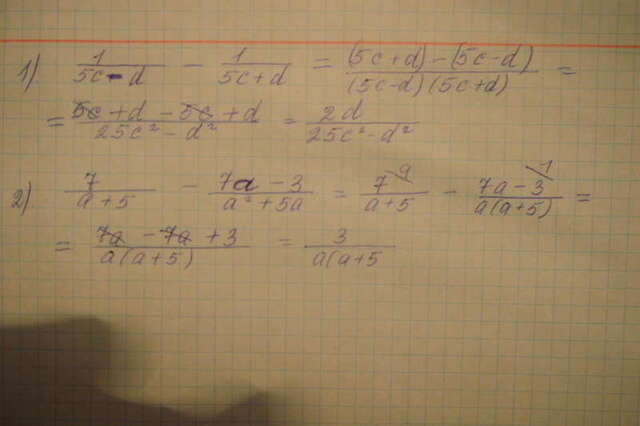 1) 1/(5c - d) - 1/(5c + d) = ((5c + d) - (5c - d))/((5c - d)(5c + d)) =
= (5c + d - 5c + d)/(25c² - d²) = 2d/(25c² - d²)
2) 7/(a + 5) - (7a - 3)/(a² + 5a) = 7\a/(a + 5) - (7a - 3\1)/(a(a + 5)) =
= (7a - 7a + 3)/(a(a + 5)) = 3/(a(a + 5